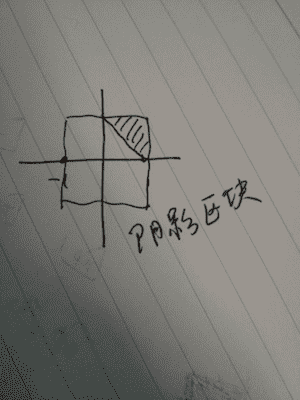 -1
阴影区块